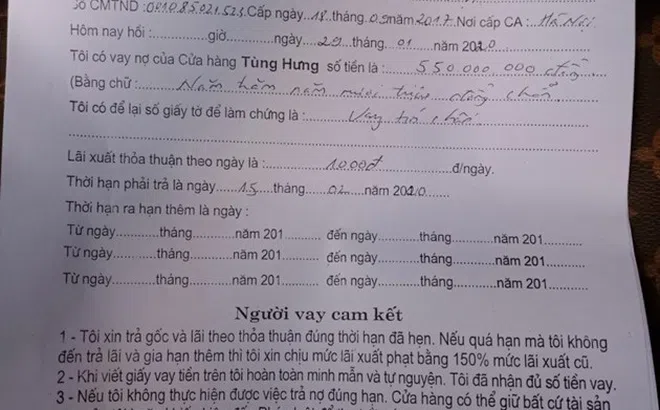 Số CMTND :001.085.021.523 Cấp ngày 18 tháng 09 năm 2017. Nơi cấp CA : Hà Nội
Hôm nay hồi : ............ giờ ............ ngày 29 tháng 01 năm 2020
Tôi có vay nợ của Cửa hàng Tùng Hưng số tiền là : 550 000 000 đồng
(Bằng chữ : Năm trăm năm mươi triệu đồng chẵn
Tôi có để lại số giấy tờ để làm chứng là : Vay tín chấp
Lãi xuất thỏa thuận theo ngày là : 1000đ đ/ngày.
Thời hạn phải trả là ngày 15 tháng 02 năm 2020
Thời hạn ra hạn thêm là ngày :
Từ ngày............tháng............năm 201........... đến ngày............tháng............năm 201..........
Từ ngày............tháng............năm 201........... đến ngày............tháng............năm 201..........
Từ ngày............tháng............năm 201........... đến ngày............tháng............năm 201..........
Người vay cam kết
1 - Tôi xin trả gốc và lãi theo thỏa thuận đúng thời hạn đã hẹn. Nếu quá hạn mà tôi không
đến trả lãi và gia hạn thêm thì tôi xin chịu mức lãi xuất phạt bằng 150% mức lãi xuất cũ.
2 - Khi viết giấy vay tiền trên tôi hoàn toàn minh mẫn và tự nguyện. Tôi đã nhận đủ số tiền vay.
3 - Nếu tôi không thực hiện được việc trả nợ đúng hạn. Cửa hàng có thể giữ bất cứ tài sản